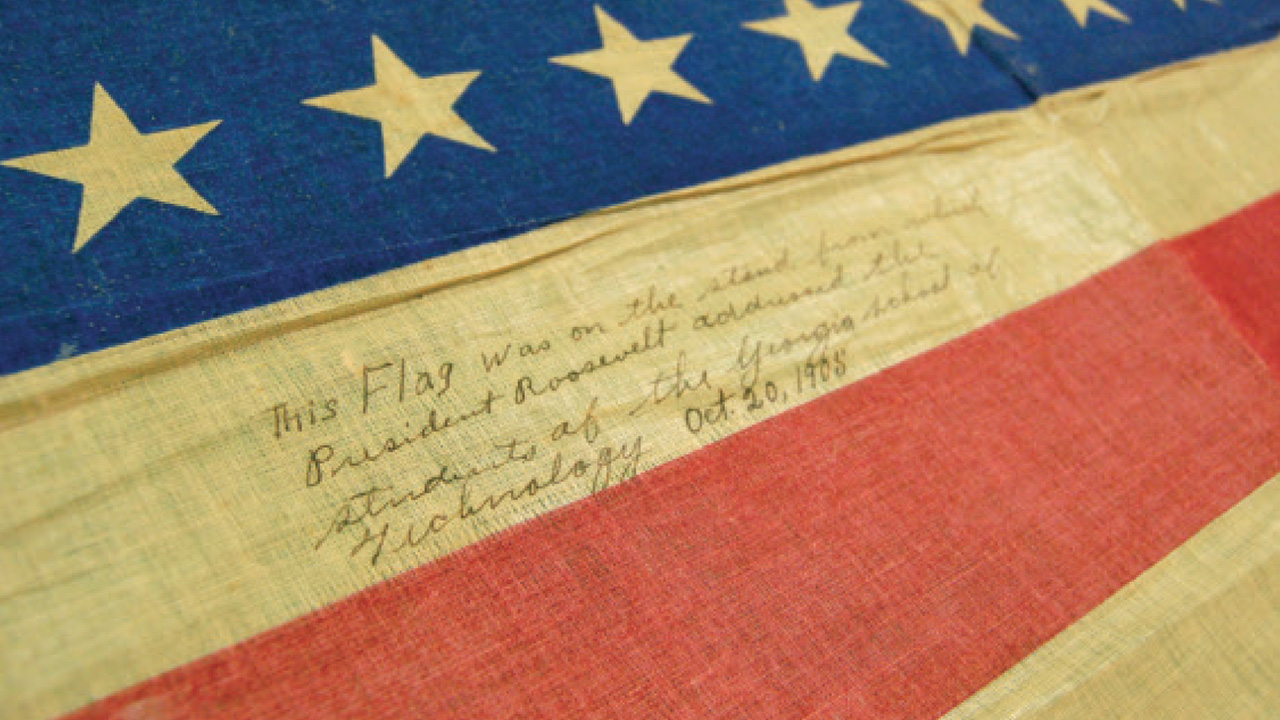 This Flag was on the stand from which
President Roosevelt addressed the
students of the Georgia school of
Technology Oct. 20, 1905